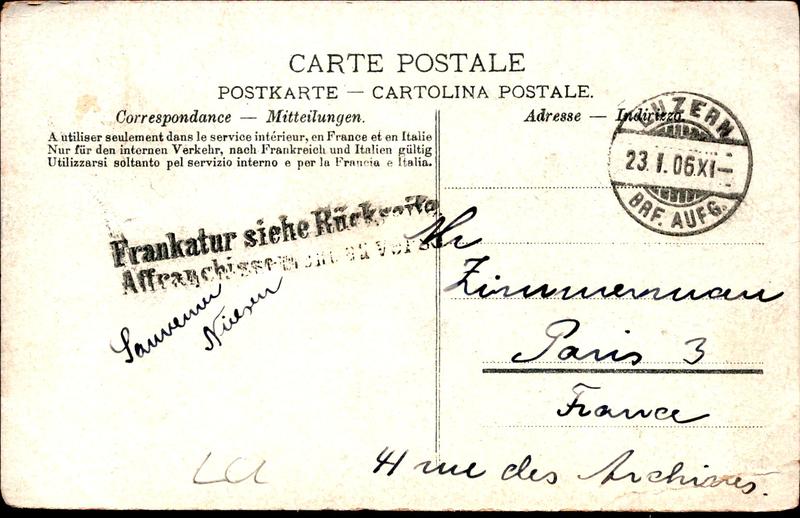 CARTE POSTALE
POSTKARTE — CARTOLINA POSTALE.
Correspondance — Mitteilungen.
A utiliser seulement dans le service intérieur, en France et en Italie
Nur für den internen Verkehr, nach Frankreich und Italien gültig
Utilizzarsi soltanto pel servizio interno e per la Francia e Italia.
Adresse — Indirizzo.
LUZERN
23.I.06.XI—
BRF. AUFG.
Frankatur siehe Rückseite
Affranchissement au verso
Souvenir
Mr
Zimmermann
Paris 3
France
41 rue des Archives.